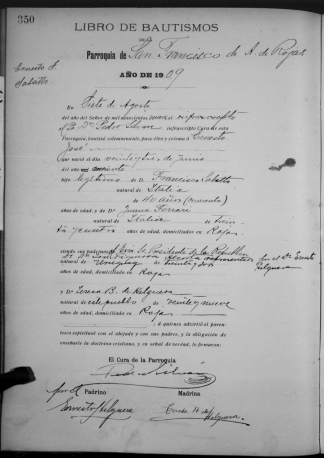 350
LIBRO DE BAUTISMOS
DE LA
Parroquia de San Francisco de A. de Rojas
AÑO DE 1909
Ernesto S
Sabatto
En Siete de Agosto
del año del Señor de mil novecientos
el Pb. Dn. Pedro Silván infrascripto Cura de esta
Parroquia, bautizó solemnemente, puso óleo y crisma á Ernesto
José
que nació el día veinticuatro de Junio
del año corriente
hijo legítimo de D. Francisco Sabatto
natural de Italia
de 40 años (cuarenta)
años de edad, y de Da. Juana Ferrari
natural de Italia de trein
ta y cuatro años de edad, domiciliados en Rojas
siendo sus padrinos el Exmo. Sr. Presidente de la República
Dr. Dn. José Figueroa Alcorta representado por el Dr. Ernesto
Helguera
natural de
años de edad, domiciliado en Rojas
y Da. Teresa B. de Helguera
natural de este pueblo de veintinueve
años de edad, domiciliada en Rojas
á quienes advertí el paren-
tesco espiritual con el ahijado y con sus padres, y la obligación de
enseñarle la doctrina cristiana, y en señal de verdad, lo firmamos:
El Cura de la Parroquia
Pedro Silván
Padrino
Madrina
Ernesto Helguera
Helguera